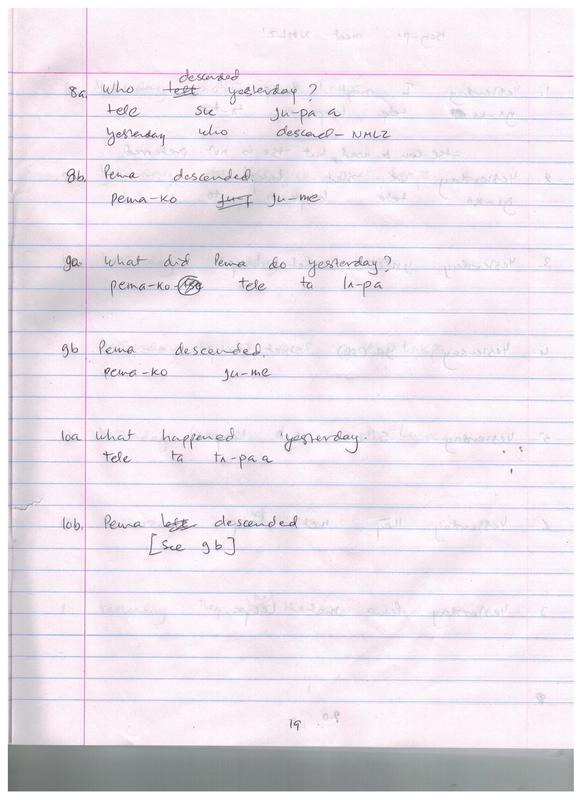 descended
8a. Who left yesterday?
tele su ju-pa a
yesterday who descend-NMLZ
8b. Pema descended.
pema-ko ju-me
9a. What did Pema do yesterday?
pema-ko tele ta lʌ-pa
9b Pema descended.
pema-ko ju-me
10a what happened yesterday.
tele ta tʌ-pa a
10b. Pema left descended
[See 9b]
19